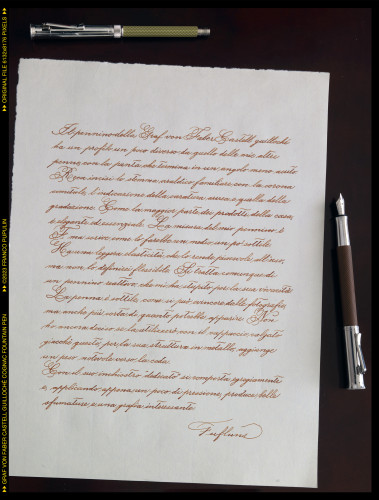 ▸▸ ORIGINAL FILE 6132x8176 PIXELS ▸▸
▸▸ ©2023 FRANCO PUPULIN
▸▸ GRAF VON FABER CASTELL GUILLOCHÉ COGNAC FOUNTAIN PEN
Il pennino della Graf von Faber Castell guilloché
ha un profilo un poco diverso da quello delle mie altre
penne, con la punta che termina in un angolo meno acuto.
Reca inciso lo stemma araldico familiare con la corona
comitale, l'indicazione della caratura aurea e quella della
gradazione. Come la maggior parte dei prodotti della casa,
è elegante ed essenziale. La misura del mio pennino è
F, ma scrive come lo farebbe un medio un po' sottile.
Ha una leggera elasticità, che lo rende piacevole all'uso,
ma non lo definirei flessibile. Si tratta comunque di
un pennino reattivo, che mi ha stupito per la sua vivacità.
La penna è sottile, come si può evincere dalle fotografie,
ma anche più corta di quanto potrebbe apparire. Non
ho ancora deciso se la utilizzerò con il cappuccio calzato
giacché questo, per la sua struttura in metallo, aggiunge
un peso notevole verso la coda.
Con il suo inchiostro dedicato si comporta egregiamente
e, applicando appena un poco di pressione, produce belle
sfumature e una grafia interessante.